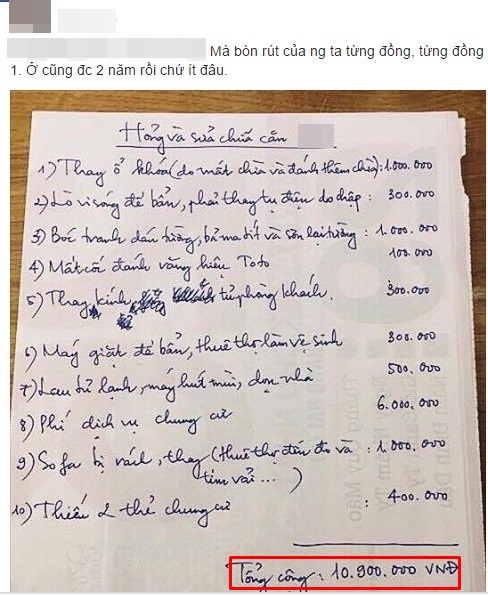 Mà bòn rút của ng ta từng đồng, từng đồng
1. Ở cũng đc 2 năm rồi chứ ít đâu.
Hỏng và sửa chữa căn
1) Thay ổ khóa (do mất chìa và đánh thêm chìa): 1.000.000
2) Lò vi sóng để bẩn, phải thay tụ điện do chập : 300.000
3) Bóc tranh dán tường, bả ma tít và sơn lại tường : 1.000.000
4) Mất cốc đánh răng hiệu Toto 100.000
5) Thay kính tủ phòng khách. 300.000
6) Máy giặt để bẩn, thuê thợ làm vệ sinh 300.000
7) Lau tủ lạnh, máy hút mùi, dọn nhà 500.000
8) Phí dịch vụ chung cư 6.000.000
9) Sofa bị rách, thay (thuê thợ đến đo và : 1.000.000
tìm vải ... )
10) Thiếu 2 thẻ chung cư : 400.000
Tổng cộng : 10.900.000 VNĐ